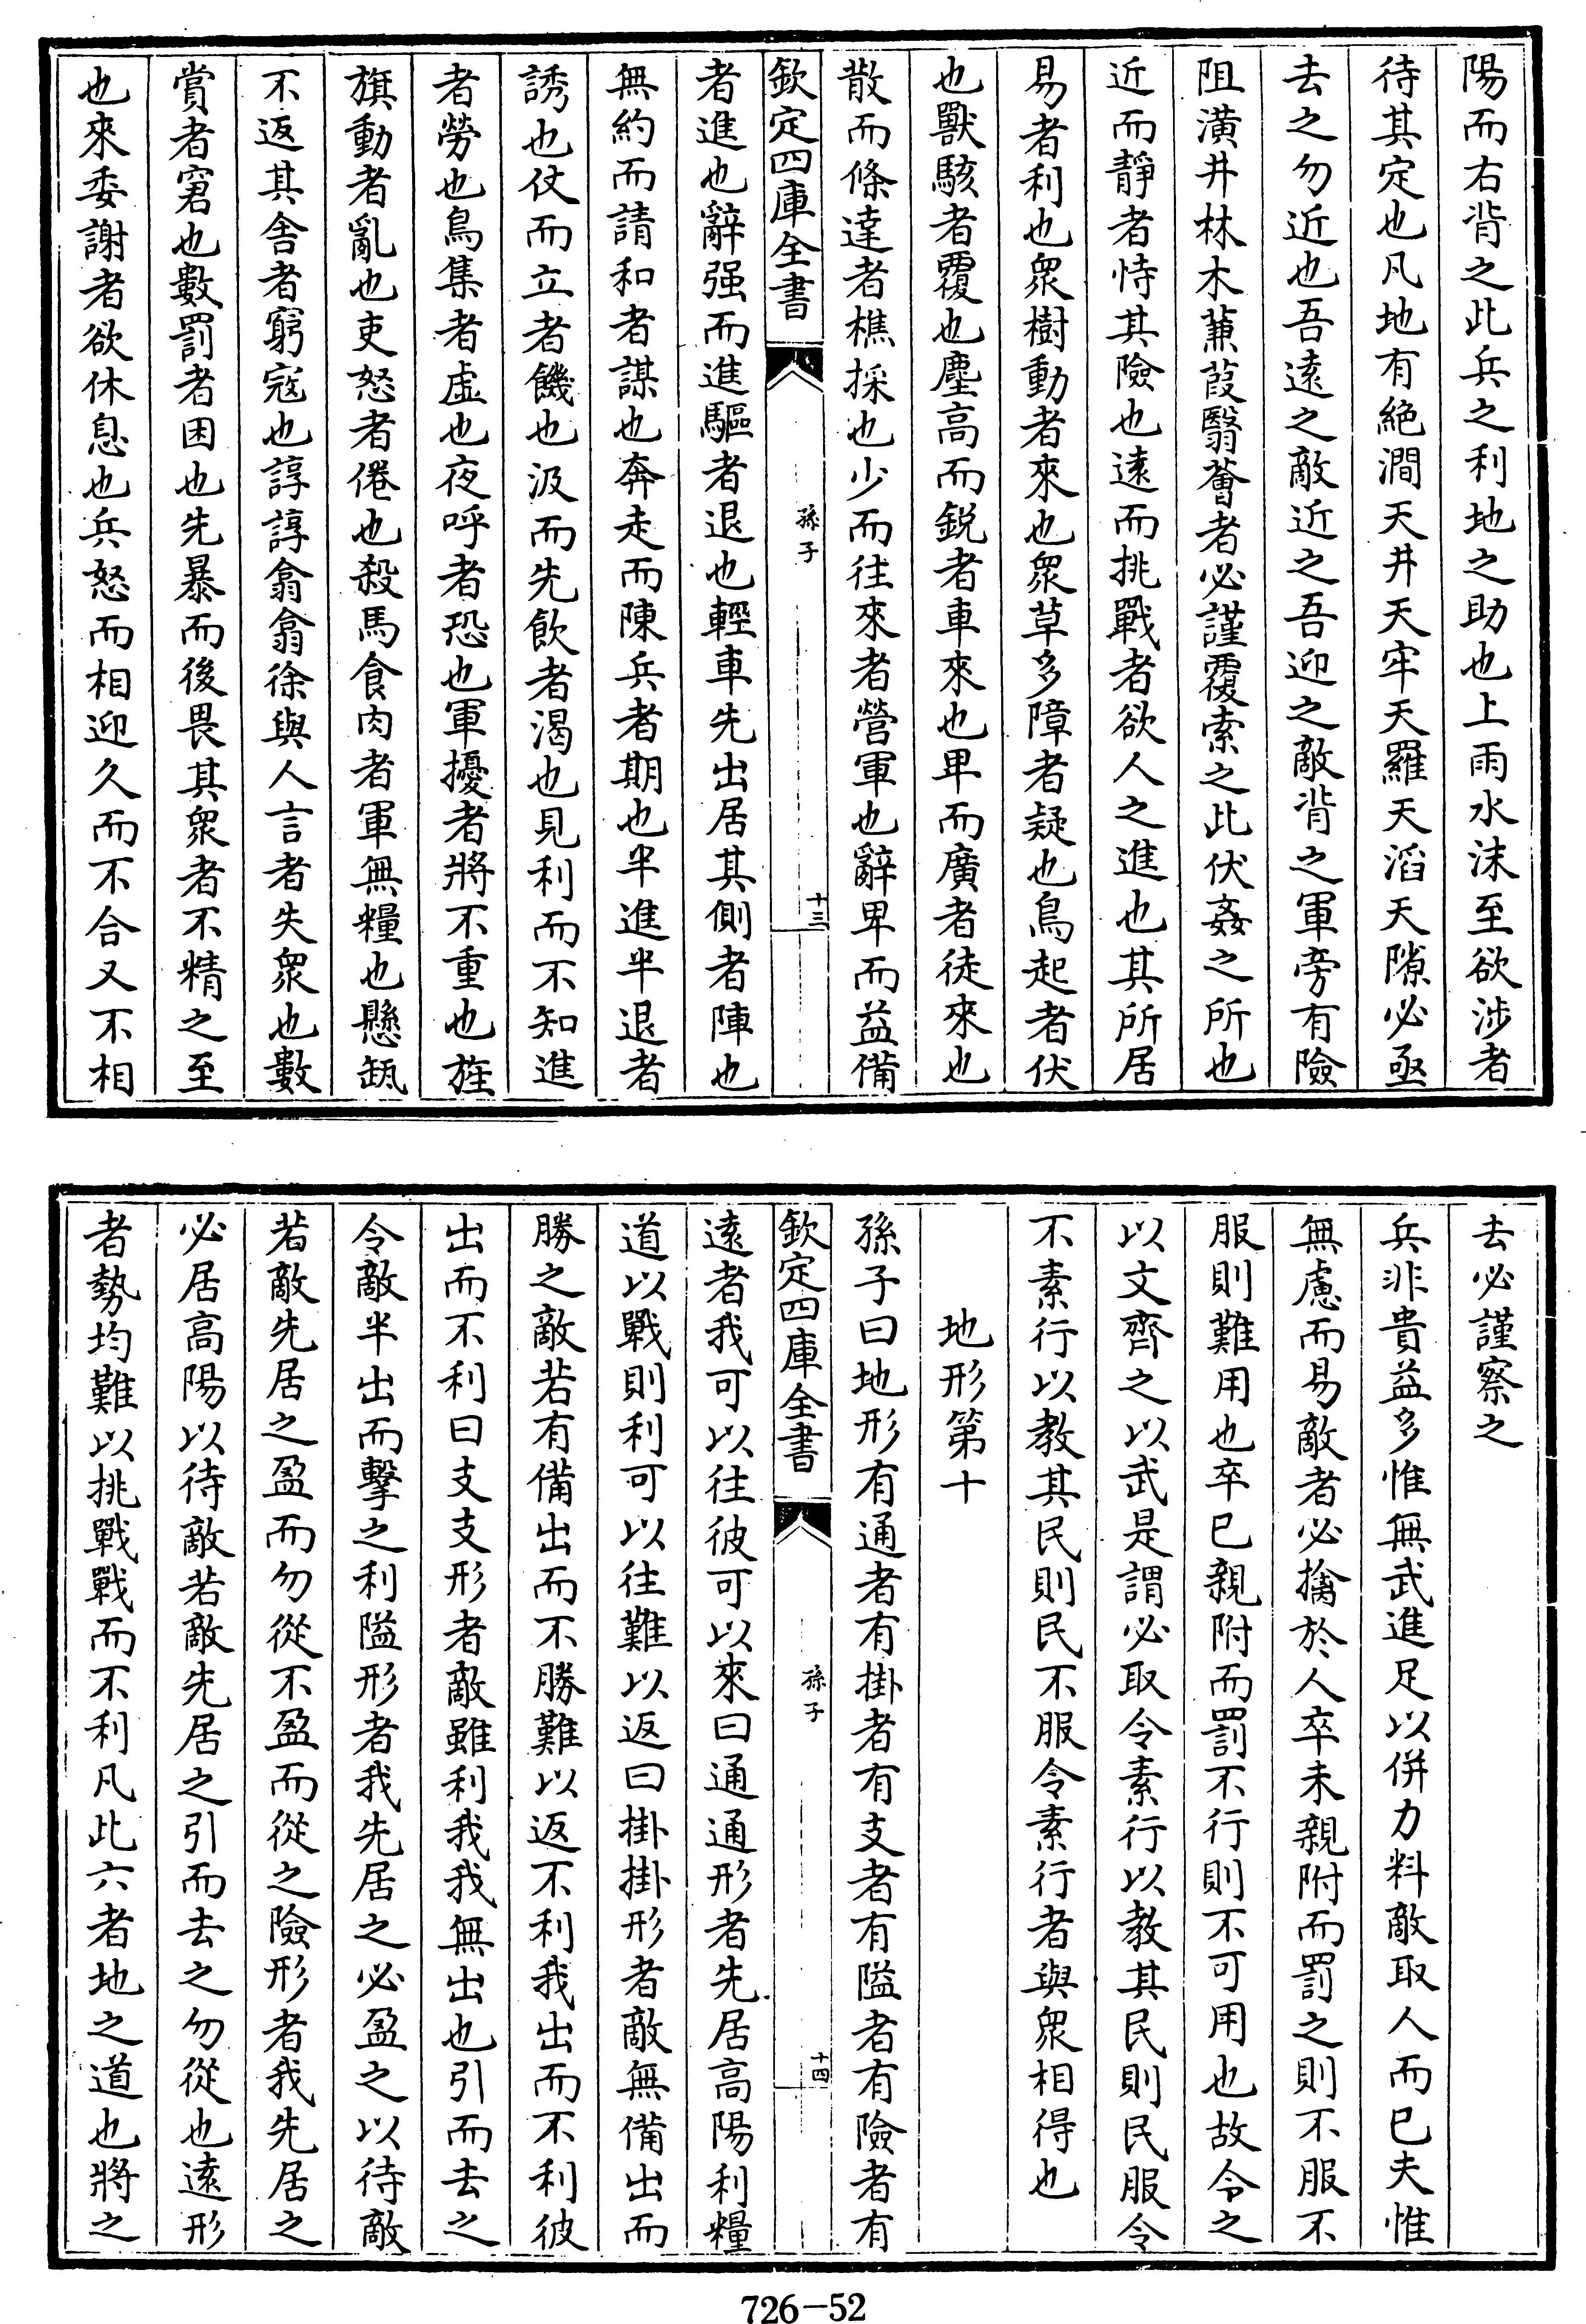 陽而右背之此兵之利地之助也上雨水沫至欲涉者
待其定也凡地有絶澗天井天牢天羅天滔天隙必亟
去之勿近也吾遠之敵近之吾迎之敵背之軍旁有險
阻潢井林木蒹葭翳薈者必謹覆索之此伏姦之所也
近而靜者恃其險也遠而挑戰者欲人之進也其所居
易者利也眾樹動者來也眾草多障者疑也鳥起者伏
也獸駭者覆也塵高而鋭者車來也卑而廣者徒來也
散而條達者樵採也少而往來者營軍也辭卑而益備
欽定四庫全書
孫子
十三
者進也辭强而進驅者退也輕車先出居其側者陣也
無約而請和者謀也奔走而陳兵者期也半進半退者
誘也仗而立者饑也汲而先飲者渴也見利而不知進
者勞也鳥集者虛也夜呼者恐也軍擾者將不重也旌
旗動者亂也吏怒者倦也殺馬食肉者軍無糧也懸缻
不返其舍者窮寇也諄諄翕翕徐與人言者失眾也數
賞者窘也數罰者困也先暴而後畏其眾者不精之至
也來委謝者欲休息也兵怒而相迎久而不合又不相
去必謹察之
兵非貴益多惟無武進足以併力料敵取人而已夫惟
無慮而易敵者必擒於人卒未親附而罰之則不服不
服則難用也卒已親附而罰不行則不可用也故令之
以文齊之以武是謂必取令素行以教其民則民服令
不素行以教其民則民不服令素行者與眾相得也
地形第十
孫子曰地形有通者有掛者有支者有隘者有險者有
欽定四庫全書
孫子
十四
遠者我可以往彼可以來曰通通形者先居高陽利糧
道以戰則利可以往難以返曰掛掛形者敵無備出而
勝之敵若有備出而不勝難以返不利我出而不利彼
出而不利曰支支形者敵雖利我我無出也引而去之
令敵半出而擊之利隘形者我先居之必盈之以待敵
若敵先居之盈而勿從不盈而從之險形者我先居之
必居高陽以待敵若敵先居之引而去之勿從也遠形
者勢均難以挑戰戰而不利凡此六者地之道也將之
726-52